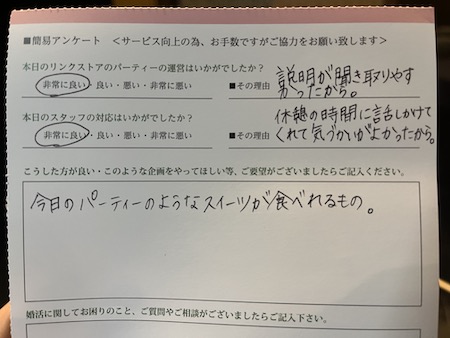 ■簡易アンケート ＜サービス向上の為、お手数ですがご協力をお願い致します＞
本日のリンクストアのパーティーの運営はいかがでしたか？
非常に良い・良い・悪い・非常に悪い ■その理由 説明が聞き取りやす
かったから。
本日のスタッフの対応はいかがでしたか？
非常に良い・良い・悪い・非常に悪い ■その理由 休憩の時間に話しかけて
くれて気づかいがよかったから。
こうした方が良い・このような企画をやってほしい等、ご要望がございましたらご記入ください。
今日のパーティーのようなスイーツが食べれるもの。
婚活に関してお困りのこと、ご質問やご相談がございましたらご記入下さい。